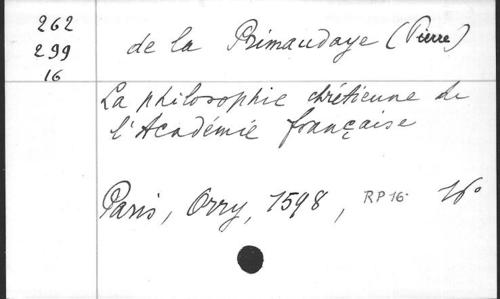 262
299
16
de la Primaudaye (Pierre)
La philosophie chrétienne de
l'Académie française
Paris, Orry, 1598, RP 16- 16°